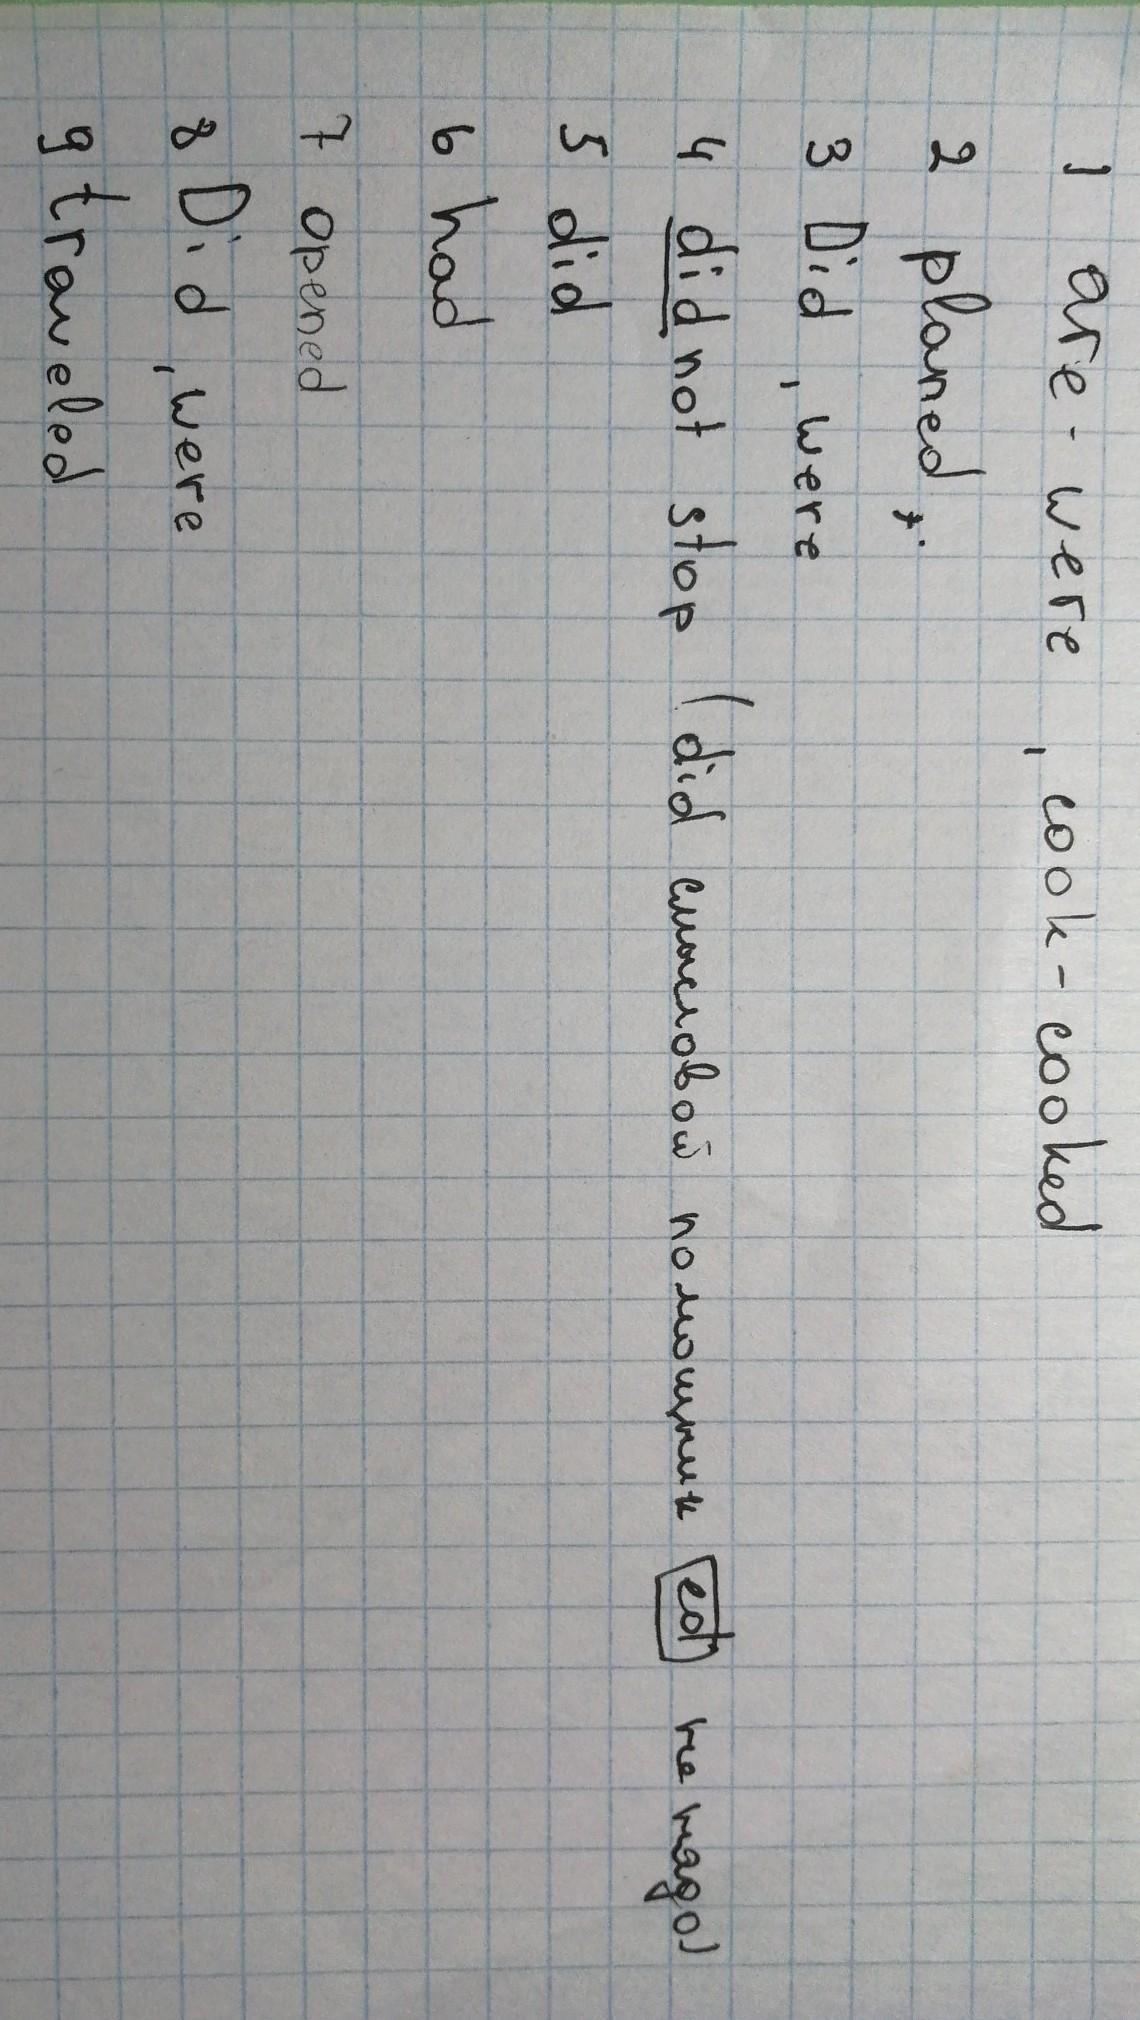 1 are - were , cook - cooked
2 planed
3 Did , were
4 did not stop (did смысловой помощник ed не надо)
5 did
6 had
7 opened
8 Did , were
9 traveled